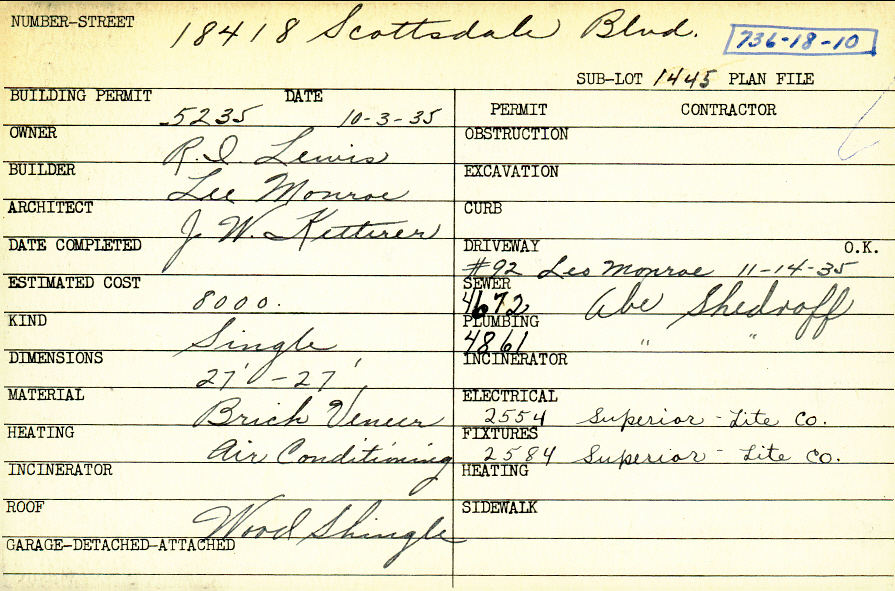 NUMBER-STREET 18418 Scottsdale Blvd. 736-18-10
SUB-LOT 1445 PLAN FILE
BUILDING PERMIT 5235 DATE 10-3-35
OWNER R.I. Lewis
BUILDER Lee Monroe
ARCHITECT J. W. Ketterer
DATE COMPLETED
ESTIMATED COST 8000.
KIND Single
DIMENSIONS 27' - 27'
MATERIAL Brick Veneer
HEATING Air Conditioning
INCINERATOR
ROOF Wood Shingle
GARAGE-DETACHED-ATTACHED
PERMIT CONTRACTOR
OBSTRUCTION
EXCAVATION
CURB
DRIVEWAY O.K.
#92 Leo Monroe 11-14-35
SEWER
4672 Abe Shedroff
PLUMBING
4861 " "
INCINERATOR
ELECTRICAL
2554 Superior-Lite Co.
FIXTURES
2584 Superior-Lite Co.
HEATING
SIDEWALK